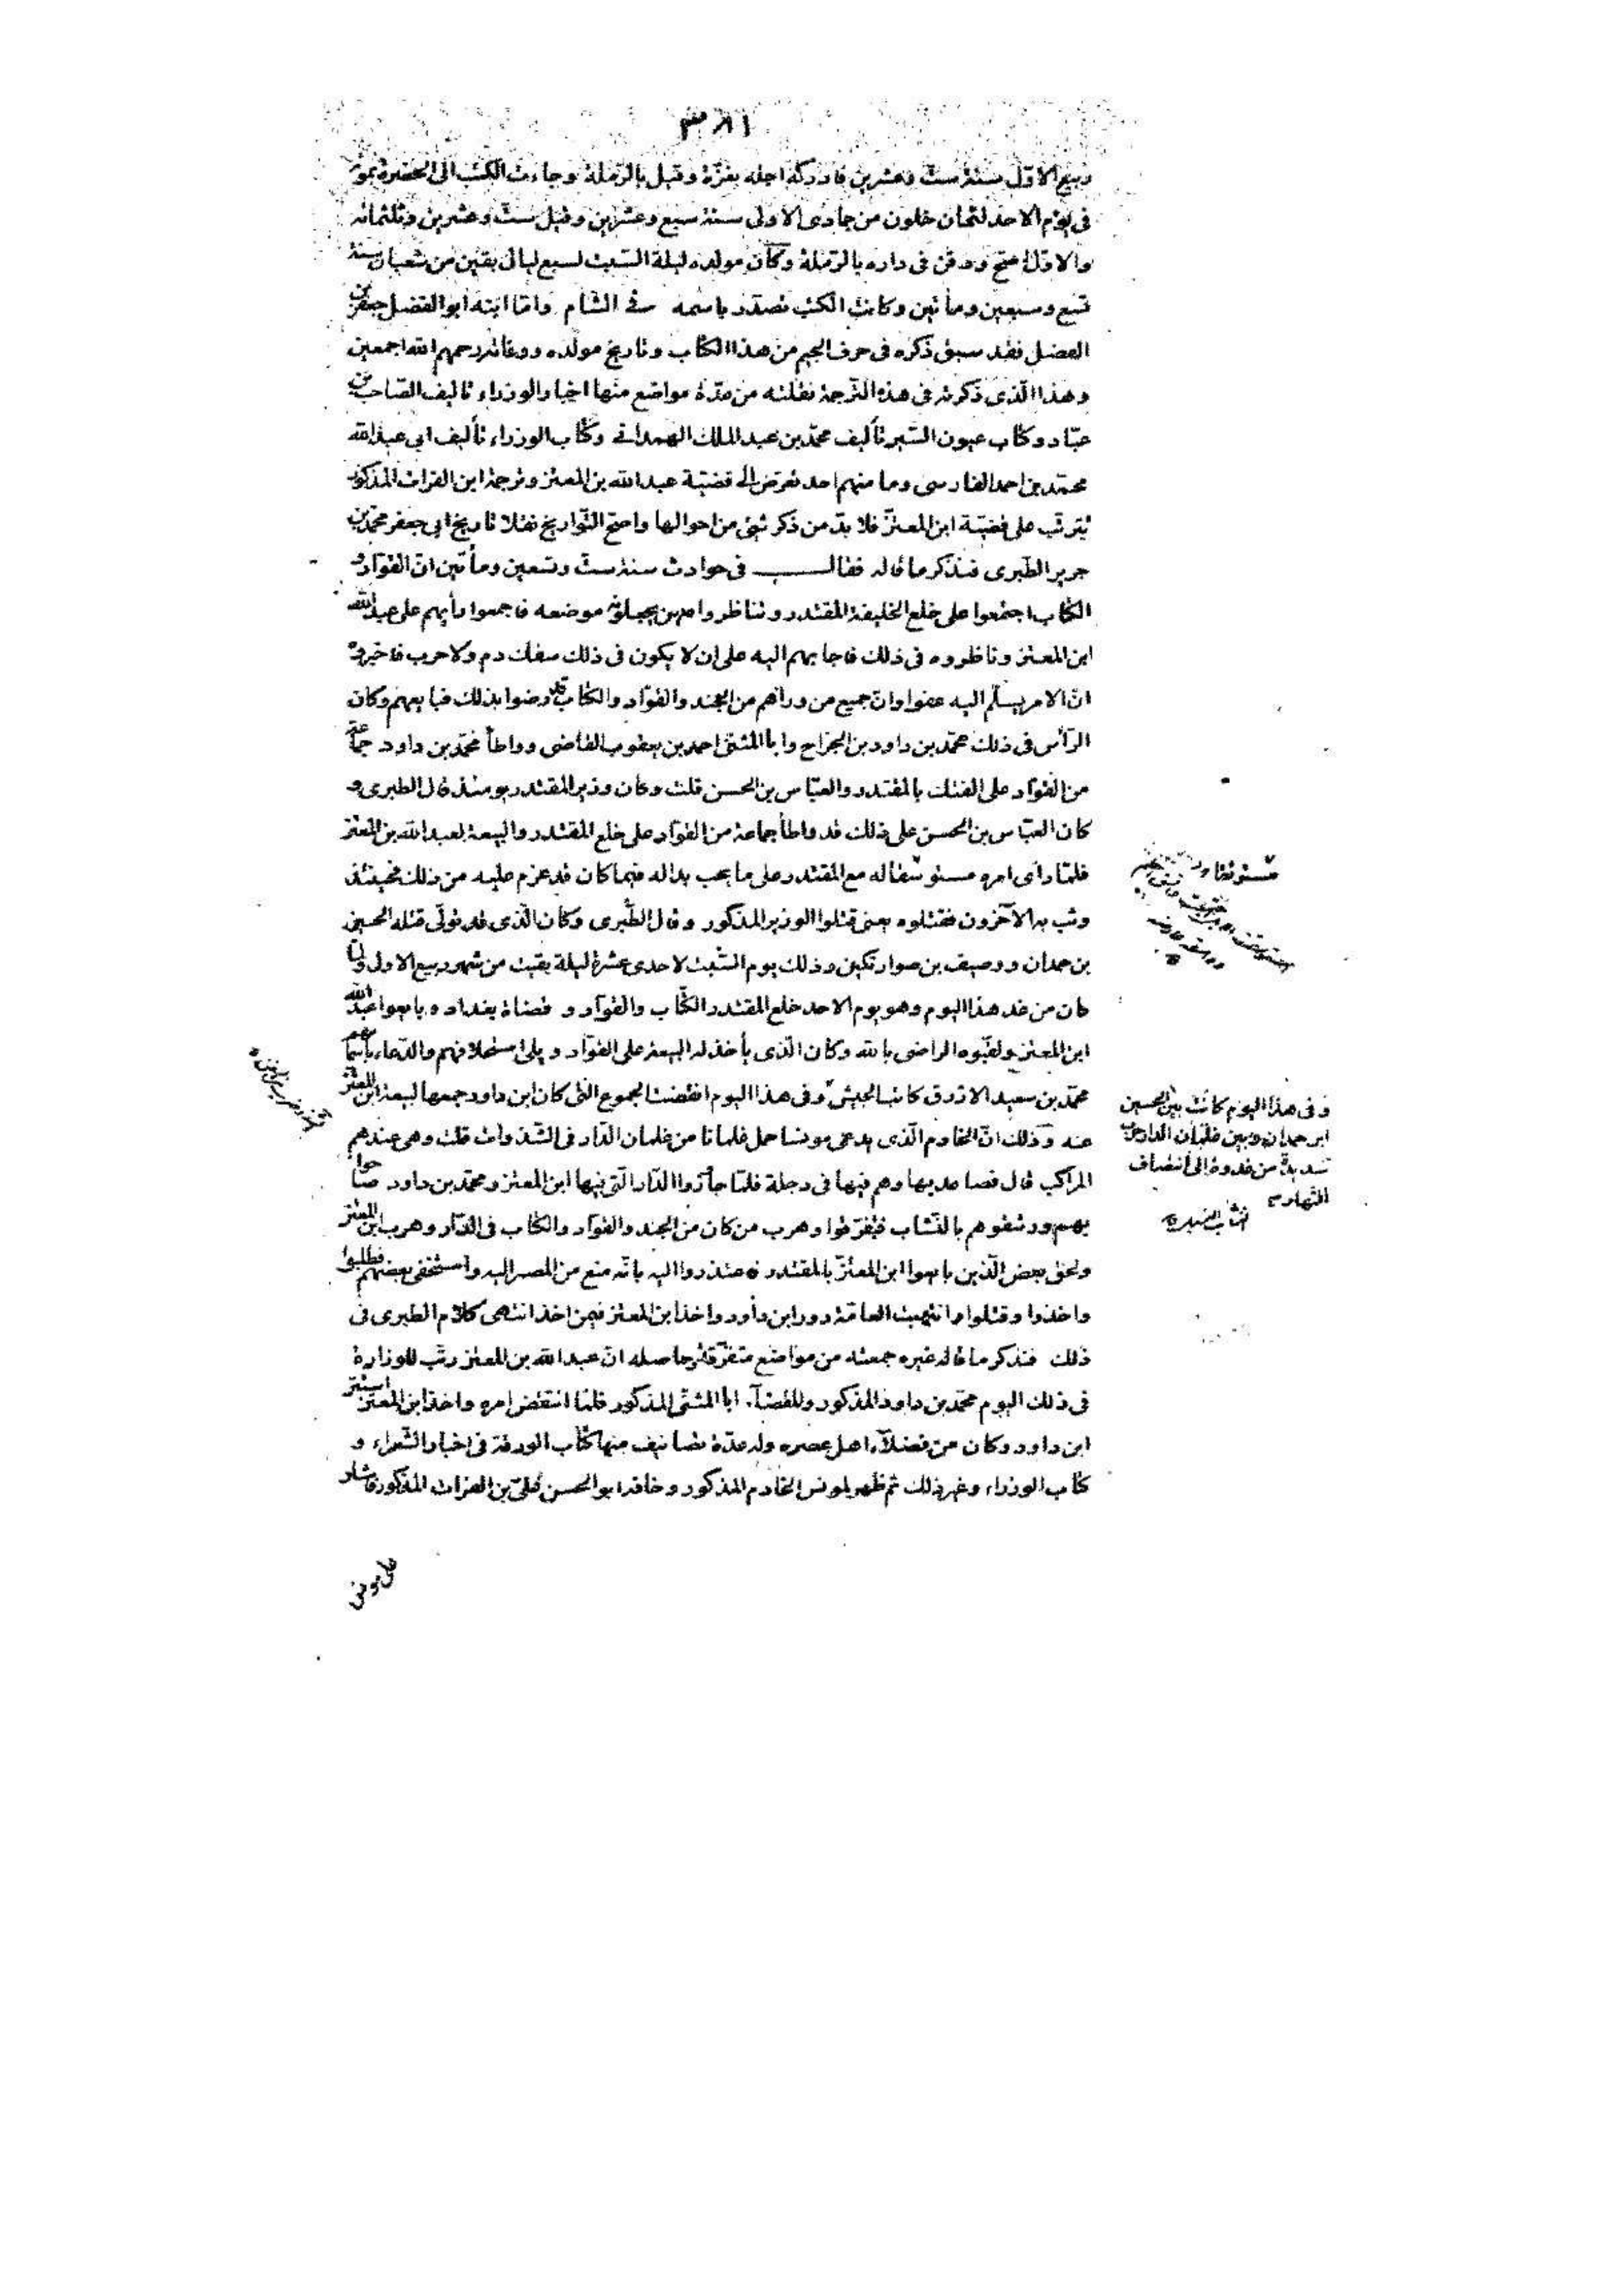 ٣٨١
ربيع الاوّل سنة ستّ وعشرين فادركه اجله بغزّة وقيل بالرّملة وجاءت الكتب الى الحضرة بموته
فى يوم الاحد لثمان خلون من جمادى الاولى سنة سبع وعشرين وقيل ستّ وعشرين وثلثمائة
والاوّل اصحّ ودفن فى داره بالرّملة وكان مولده ليلة السّبت لسبع ليال بقين من شعبان سنة
تسع وسبعين ومأتين وكانت الكتب تصدّر باسمه فى الشام وامّا ابنه ابو الفضل جعفر بن
الفضل فقد سبق ذكره فى حرف الجيم من هذا الكتاب وتاريخ مولده ووفاته رحمهم الله اجمعين
وهذا الّذى ذكرته فى هذه التّرجمة نقلته من عدّة مواضع منها اخبار الوزراء تاليف الصّاحب بن
عبّاد وكتاب عيون السّير تأليف محمّد بن عبد الملك الهمدانى وكتاب الوزراء تأليف ابى عبد الله
محمّد بن احمد الفارسى وما منهم احد تعرّض الى قضيّة عبد الله بن المعتز وترجمة ابن الفرات المذكور
تترتّب على قضيّة ابن المعتزّ فلا بدّ من ذكر شئ من احوالها واصحّ التّواريخ نقلا تاريخ ابى جعفر محمّد بن
جرير الطّبرى فنذكر ما قاله فقال فى حوادث سنة ستّ وتسعين ومأتين انّ القوّاد و
الكتّاب اجتمعوا على خلع الخليفة المقتدر وتناظروا من يجعلونه موضعه فاجمعوا رأيهم على عبد الله
ابن المعتز وناظروه فى ذلك فاجابهم اليه على ان لا يكون فى ذلك سفك دم ولا حرب فاخبروه
انّ الامر يسلّم اليه عفوا وانّ جميع من ورائهم من الجند والقوّاد والكتّاب قد رضوا بذلك فبايعهم وكان
الرّأس فى ذلك محمّد بن داود بن الجرّاح وابا المثنّى احمد بن يعقوب القاضى وواطأ محمّد بن داود جماعة
من القوّاد على الفتك بالمقتدر والعبّاس بن الحسن قلت وكان وزير المقتدر يومئذ قال الطبرى و
كان العبّاس بن الحسن على ذلك قد واطأ جماعة من القوّاد على خلع المقتدر والبيعة لعبد الله بن المعتز
فلمّا رأى امره مستوثقا له مع المقتدر على ما يحب بدا له فيما كان قد عزم عليه من ذلك فحينئذ
وثب به الآخرون فقتلوه يعنى قتلوا الوزير المذكور وقال الطّبرى وكان الّذى قد تولّى قتله الحسين
بن حمدان ووصيف بن صوارتكين وذلك يوم السّبت لاحدى عشرة ليلة بقيت من شهر ربيع الاولى ولمّا
كان من غد هذا اليوم وهو يوم الاحد خلع المقتدر الكتّاب والقوّاد و قضاة بغداد وبايعوا عبد الله
ابن المعتز ولقّبوه الراضى بالله وكان الّذى يأخذ له البيعة على القوّاد ويلى استحلافهم والدّعاء باسمائهم
محمّد بن سعيد الازرق كاتب الجيش وفى هذا اليوم انفضت الجموع الّتى كان ابن داود جمعها لبيعة ابن المعتزّ
عنه وذلك انّ الخادم الّذى يدعى مونسا حمل غلمانا من غلمان الدّار فى الشّذوات قلت وهى عندهم
المراكب قال فصاعد بها وهم فيها فى دجلة فلمّا جازوا الدّار الّتى فيها ابن المعتز ومحمّد بن داود صاحوا
بهم ورشقوهم بالنّشاب فتفرّقوا وهرب من كان من الجند والقوّاد والكتّاب فى الدّار وهرب ابن المعتز
ولحق بعض الّذين بايعوا ابن المعتزّ بالمقتدر فاعتذروا اليه بانّه منع من المصير اليه واستخفى بعضهم فطلبوا
واخذوا وقتلوا وانتهبت العامّة دور ابن داود واخذ ابن المعتز فيمن اخذ انتهى كلام الطبرى فى
ذلك فنذكر ما قاله غيره جمعته من مواضع متفرّقة وحاصله انّ عبد الله بن المعتز رتّب للوزارة
فى ذلك اليوم محمّد بن داود المذكور وللقضآء ابا المثنّى المذكور فلمّا انتقض امره واخذ ابن المعتز استتر
ابن داود وكان من فضلآء اهل عصره وله عدّة تصانيف منها كتاب الورقة فى اخبار الشّعراء و
كتاب الوزراء وغير ذلك ثم ظهر لمونس الخادم المذكور وخافه ابو الحسن علىّ بن الفرات المذكور فاشار
مستوثقا
وفى هذا اليوم كانت بين الحسين
ابن حمدان وبين غلمان الدار حرب
شديدة من غدوة الى انتصاف
النّهار
على مونس